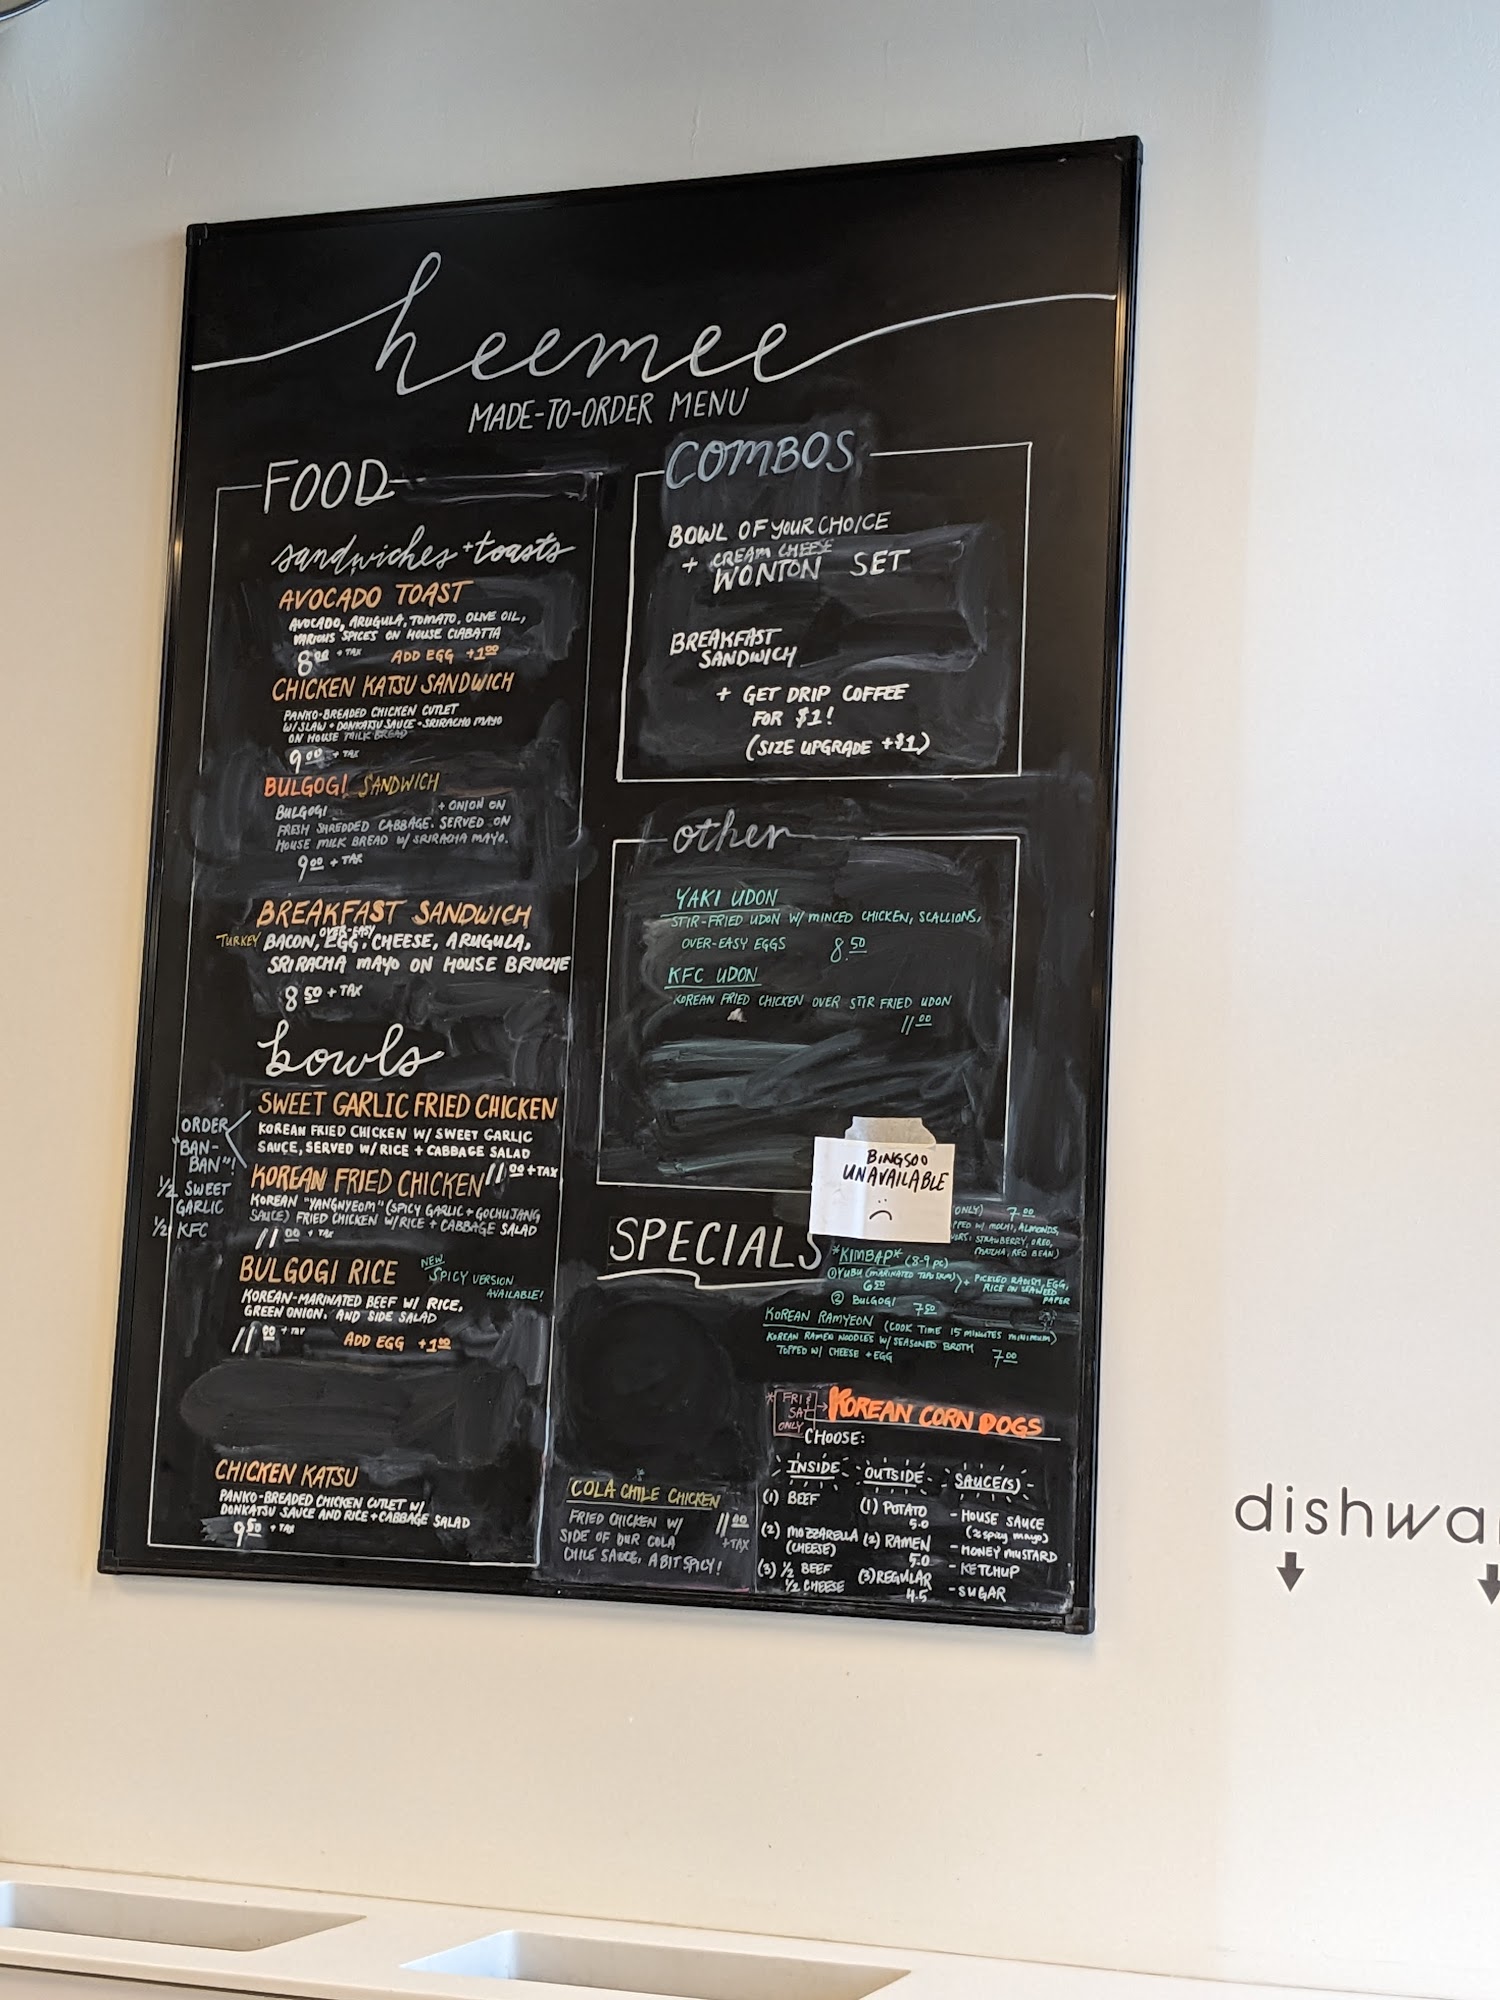 heemee
MADE-TO-ORDER MENU
FOOD
sandwiches + toasts
AVOCADO TOAST
AVOCADO, ARUGULA, TOMATO, OLIVE OIL,
VARIOUS SPICES ON HOUSE CIABATTA
8.00 + TAX ADD EGG +1.00
CHICKEN KATSU SANDWICH
PANKO-BREADED CHICKEN CUTLET
W/ SLAW + DONKATSU SAUCE + SRIRACHA MAYO
ON HOUSE MILK BREAD
9.00 + TAX
BULGOGI SANDWICH
BULGOGI + ONION ON
FRESH SHREDDED CABBAGE. SERVED ON
HOUSE MILK BREAD W/ SRIRACHA MAYO.
9.00 + TAX
BREAKFAST SANDWICH
OVER-EASY
TURKEY BACON, EGG, CHEESE, ARUGULA,
SRIRACHA MAYO ON HOUSE BRIOCHE
8.50 + TAX
bowls
SWEET GARLIC FRIED CHICKEN
KOREAN FRIED CHICKEN W/ SWEET GARLIC
SAUCE, SERVED W/ RICE + CABBAGE SALAD
11.00 + TAX
ORDER
"BAN-
BAN"!
1/2 SWEET
GARLIC
1/2 KFC
KOREAN FRIED CHICKEN
KOREAN "YANGNYEOM" (SPICY GARLIC + GOCHUJANG
SAUCE) FRIED CHICKEN W/ RICE + CABBAGE SALAD
11.00 + TAX
BULGOGI RICE
NEW
SPICY VERSION
AVAILABLE!
KOREAN-MARINATED BEEF W/ RICE,
GREEN ONION, AND SIDE SALAD
11.00 + TAX ADD EGG +1.00
CHICKEN KATSU
PANKO-BREADED CHICKEN CUTLET W/
DONKATSU SAUCE AND RICE + CABBAGE SALAD
9.50 + TAX
COMBOS
BOWL OF YOUR CHOICE
+ CREAM CHEESE
WONTON SET
BREAKFAST
SANDWICH
+ GET DRIP COFFEE
FOR $1!
(SIZE UPGRADE +$1)
other
YAKI UDON
STIR-FRIED UDON W/ MINCED CHICKEN, SCALLIONS,
OVER-EASY EGGS 8.50
KFC UDON
KOREAN FRIED CHICKEN OVER STIR FRIED UDON
11.00
BINGSOO
UNAVAILABLE
SPECIALS
ONLY) 7.00
W/ MOCHI, ALMONDS,
STRAWBERRY, OREO,
MATCHA, RED BEAN)
*KIMBAP* (8-9 pc)
① YUBU (MARINATED TOFU SKIN) + PICKLED RADISH, EGG,
6.50 RICE ON SEAWEED
PAPER
② BULGOGI 7.50
KOREAN RAMYEON (COOK TIME 15 MINUTES MINIMUM)
KOREAN RAMEN NOODLES W/ SEASONED BROTH
TOPPED W/ CHEESE + EGG 7.00
COLA CHILE CHICKEN
FRIED CHICKEN W/ 11.00
SIDE OF OUR COLA + TAX
CHILE SAUCE, A BIT SPICY!
* FRI &
SAT
ONLY
KOREAN CORN DOGS
CHOOSE:
INSIDE
(1) BEEF
(2) MOZZARELLA
(CHEESE)
(3) 1/2 BEEF
1/2 CHEESE
OUTSIDE
(1) POTATO
5.0
(2) RAMEN
5.0
(3) REGULAR
4.5
SAUCE(S)
- HOUSE SAUCE
(≈ spicy mayo)
- HONEY MUSTARD
- KETCHUP
- SUGAR
dishwa